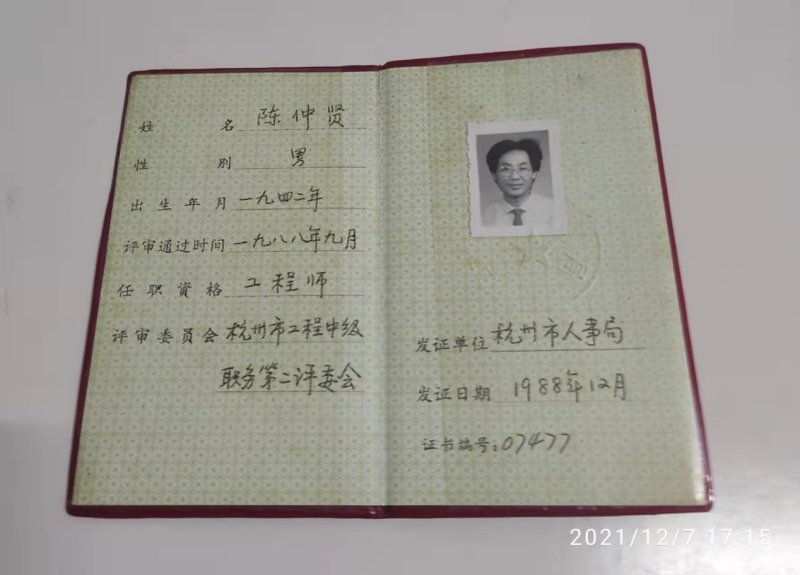 姓 名 陈仲贤
性 别 男
出生年月 一九四二年
评审通过时间 一九八八年九月
任职资格 工程师
评审委员会 杭州市工程中级
职务第二评委会
发证单位 杭州市人事局
发证日期 1988年12月
证书编号:07477
2021/12/7 17:15